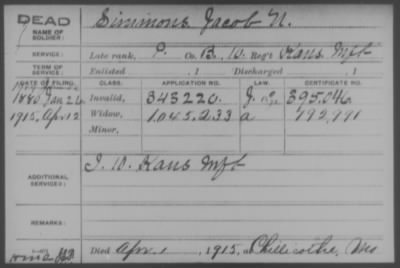 DEAD
NAME OF SOLDIER: Simmons, Jacob N.
SERVICE: Late rank, P. Co. B, 10, Reg't Kans Inft
TERM OF SERVICE: Enlisted , 1 Discharged , 1
DATE OF FILING. CLASS. APPLICATION NO. LAW. CERTIFICATE NO.
1880 Jan 26 Invalid, 343220. 395.046
1915, Apr 12 Widow, 1.045.233 a 792,791
Minor,
ADDITIONAL SERVICES: I. 10. Kans Inft
REMARKS:
Died Apr 1, 1915, at Chillicothe, Mo